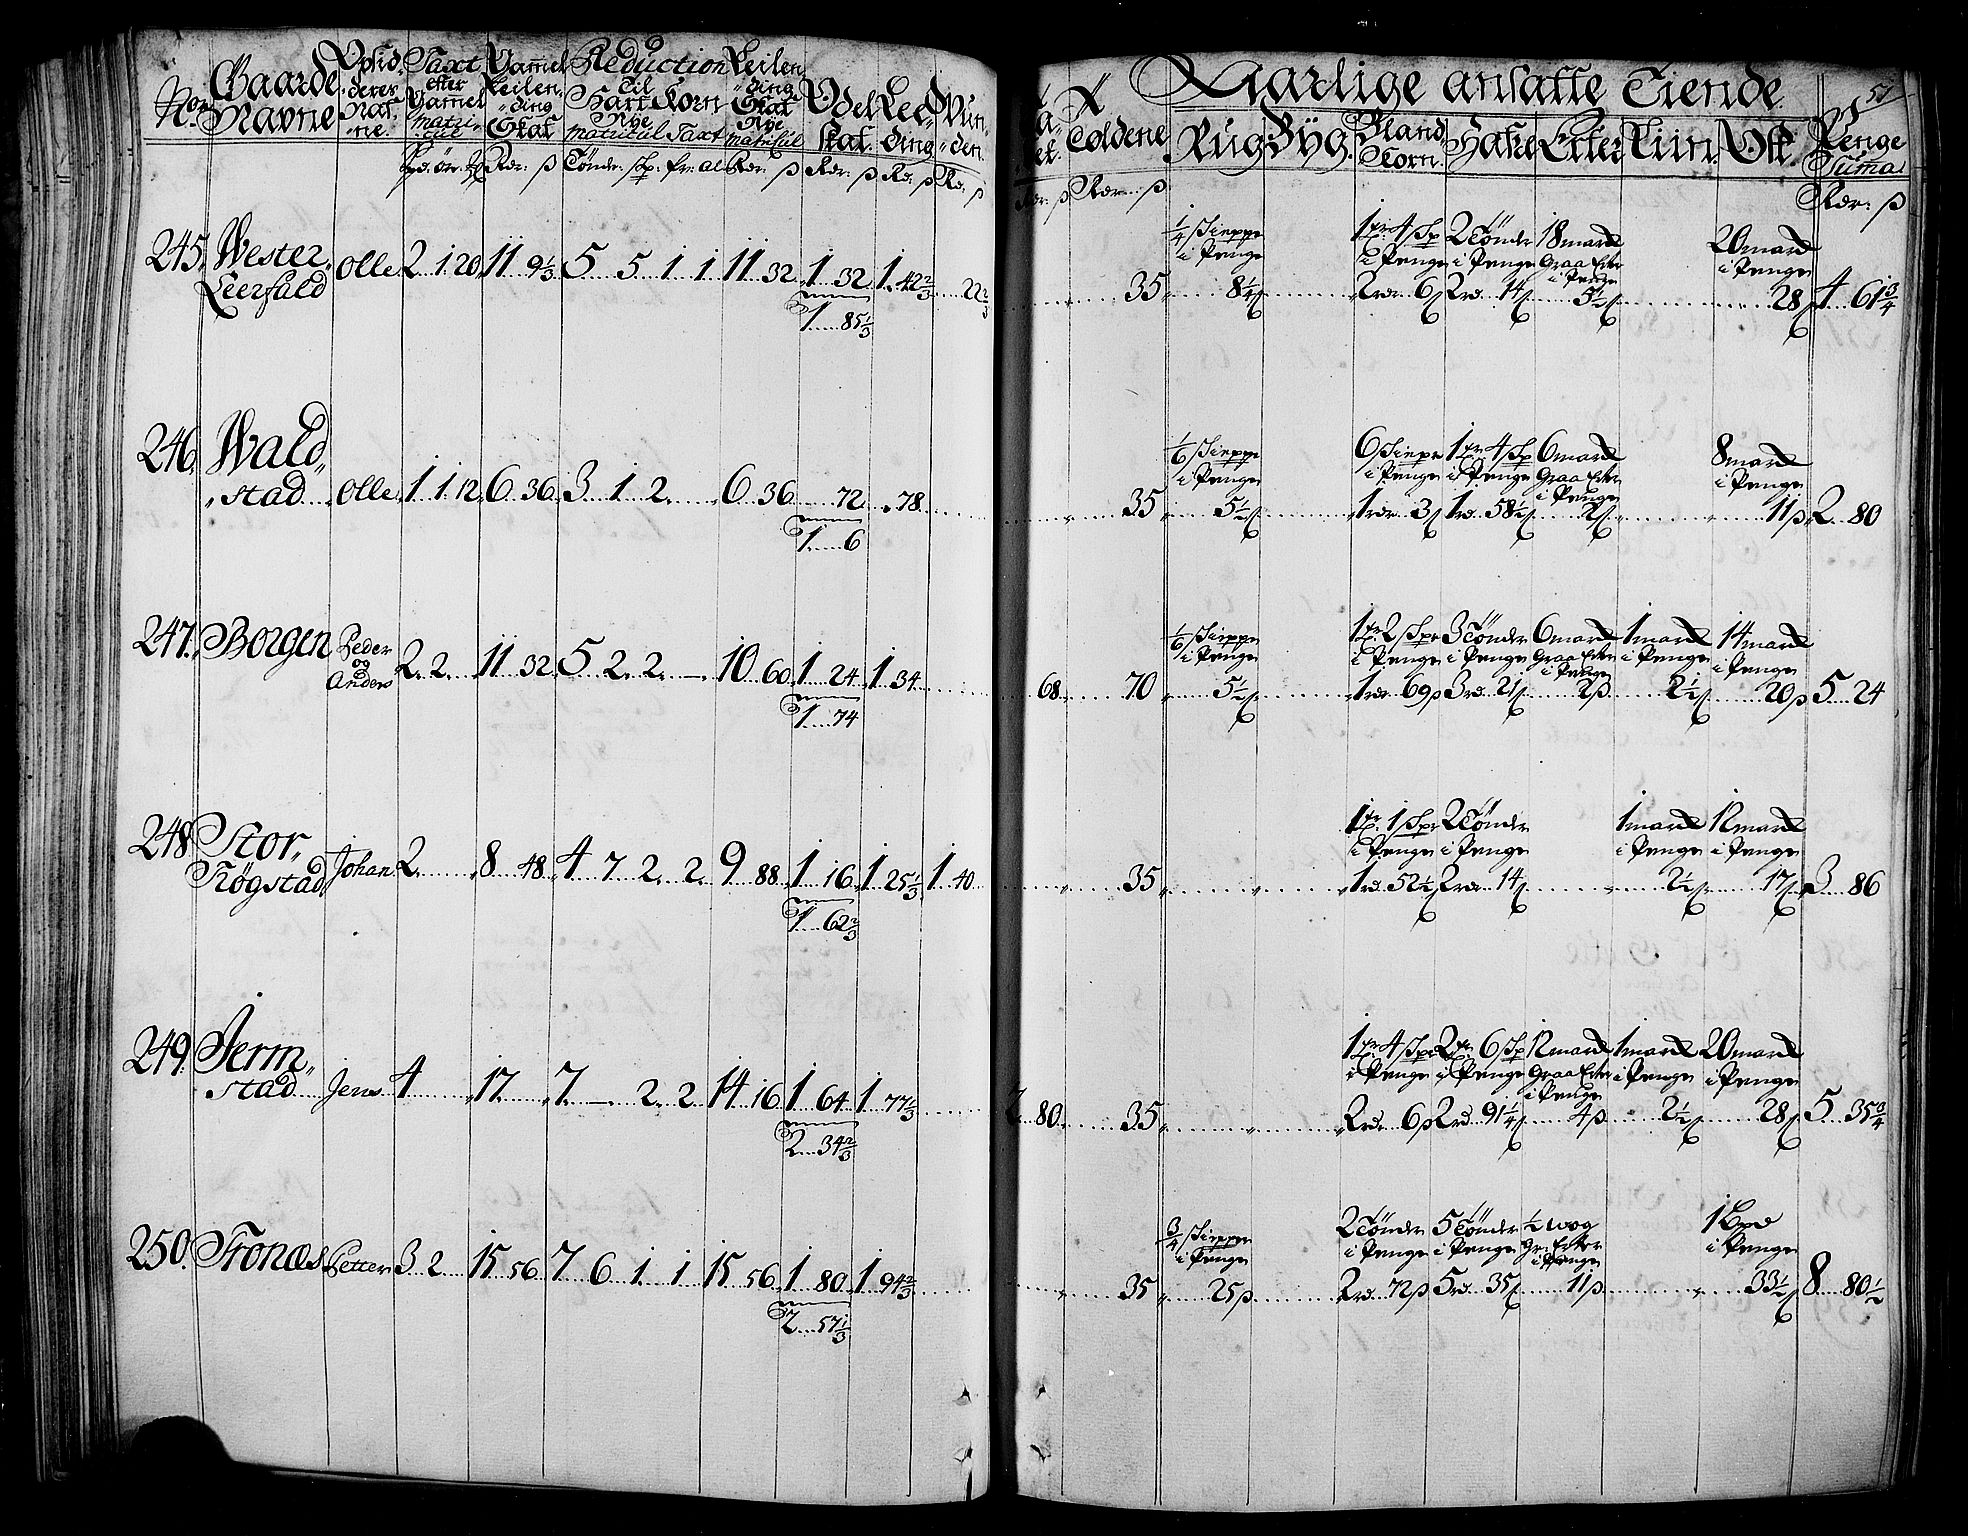 No. Gaarde Navne Taxt efter Gammel matricul Gammel Leilending Skat Reduction Til Hart Korn Nye matricul Taxt Leilending Skat Nye matricul Odel Skat. Leeding
Rdr: ß Tønder. Rdr: ß Rdr: ß Rdr. ß Rdr: ß
245. Wester Leerfald Olle 2 1 20 11 9 1/3 5 5 1 1 11 32 1 32 1. 42 2/3 22 2/3
1 85 1/3
246. Wald stad Olle 1 1 12 6 36 3 1 2 6 36 72 78
1 6
247. Borgen Peder og Anders 2 2 11 32 5 2 2 10 60 1 24 1 34
1 74
248 Stor Skøgstad Johan 2 8 48 4 7 2 2 9 88 1 16 1 25 1/3 1 40
1 62 2/3
249. Jerm stad Jens 4 17 7 — 2 2 14 16 1 64 1 77 1/3
2 34 2/3
250. Fronæs Petter 3 2 15 56 7 6 1 1 15 56 1 80 1 94 2/3
2 57 1/3
51
Aarlige ansatte Tiende
Toldene Rug Byg. Bland Korn Hafre Erter Liin. Ost. Penge Suma
Rdr: ß Rdr: ß Rdr: ß
1/4 Skieppe i Penge 1 4 i Penge 2 Tønder i Penge 18 mark Graa Erter i Penge 20 mark i Penge
35 8 1/4 ß 2 rdr 6 ß 2 rdr 14 ß 5 1/2 ß 28 ß 4 61 3/4
1/6 Skieppe i Penge 6 Skieppe i Penge 1 4 i Penge 6 mark Graa Erter i Penge 8 mark i Penge
35 5 1/2 ß 1 rdr 3 ß 1 rd. 58 1/2 ß 2 ß 11 ß 2 80
1/6 Skieppe i Penge 1 2 i Penge 3 Tønder i Penge 6 mark Graa Erter i Penge 1 mark i Penge 14 mark i Penge
68 70 5 1/2 ß 1 rdr 69 ß 3 rd. 21 ß 2 ß 2 1/2 ß 20 ß 5 24
1 1 i Penge 2 Tønder i Penge 1 mark i Penge 12 mark i Penge
35 1 rd. 52 1/2 2 rdr 14 ß 2 1/2 ß 17 ß 3 86
1 4 i Penge 2 6 i Penge 12 mark Graa Erter i Penge 1 mark i Penge 20 mark i Penge
80 35 2 rd. 6 ß 2 rd 91 1/4 ß 4 ß 2 1/2 ß 28 ß 5 35 3/4
3/4 Skieppe i Penge 2 Tønder i Penge 5 Tønder i Penge 1/2 wog Gr: Erter i Penge 1 i Penge
35 25 ß 2 rd 72 ß 5 rd 35 ß 11 ß 33 1/2 ß 8 80 1/2